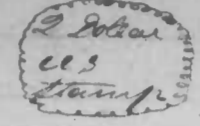 2 Dollar
US
Stamp